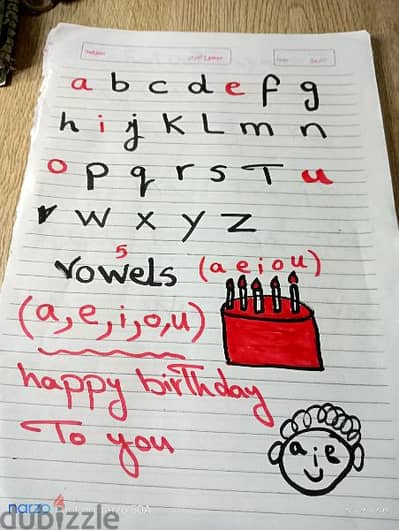 a b c d e f g
h i j K L m n
o p q r s T u
v w x y z
5
Vowels (a e i o u)
(a, e, i, o, u)
happy birthday
To you
a i e
narzo
dubizzle